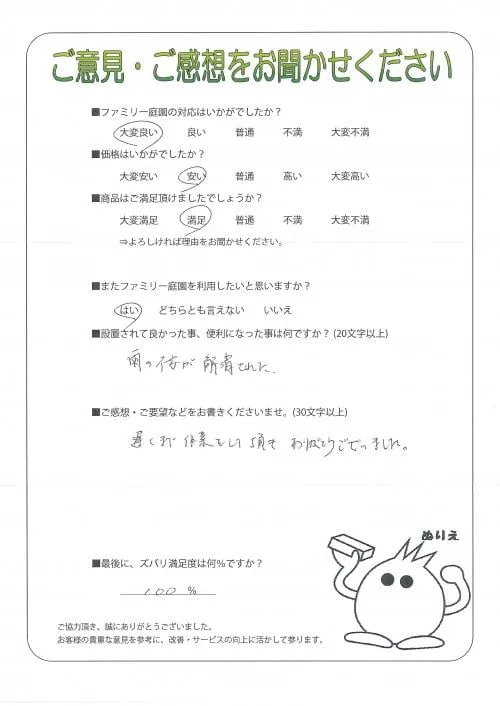 ご意見・ご感想をお聞かせください
■ファミリー庭園の対応はいかがでしたか？
大変良い 良い 普通 不満 大変不満
■価格はいかがでしたか？
大変安い 安い 普通 高い 大変高い
■商品はご満足頂けましたでしょうか？
大変満足 満足 普通 不満 大変不満
⇒よろしければ理由をお聞かせください。
■またファミリー庭園を利用したいと思いますか？
はい どちらとも言えない いいえ
■設置されて良かった事、便利になった事は何ですか？(20文字以上)
雨の 解消された.
■ご感想・ご要望などをお書きくださいませ。(30文字以上)
遅くまで作業をして頂き ありがとうございました。
ぬりえ
■最後に、ズバリ満足度は何%ですか？
100 %
ご協力頂き、誠にありがとうございました。
お客様の貴重な意見を参考に、改善・サービスの向上に活かして参ります。